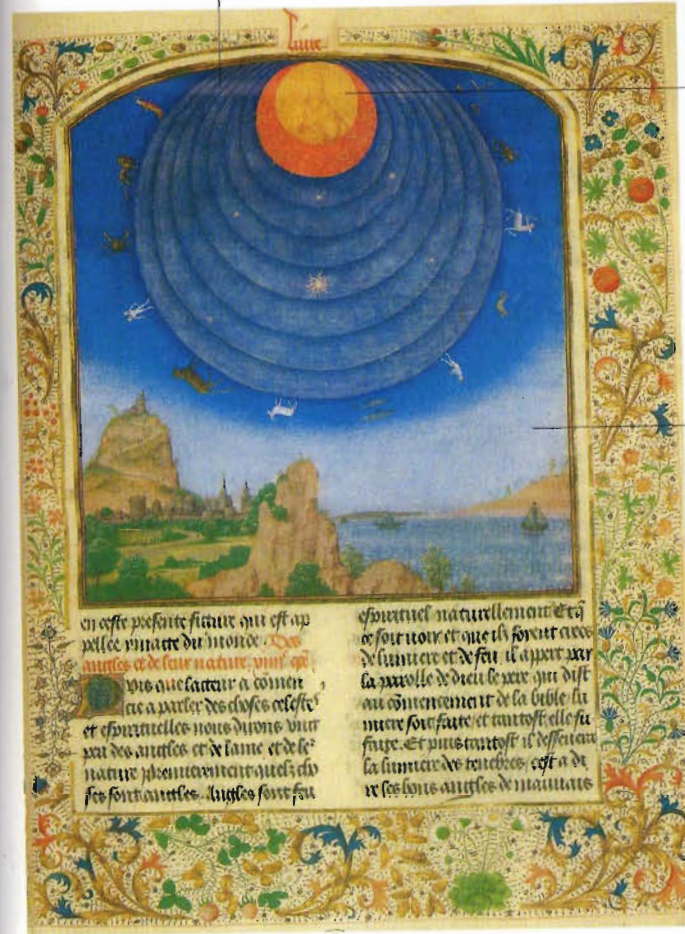 Lune
en ceste presente figure qui est ap
pellee ymage du monde. Des
angles et de leur nature. viiie. ca
Puis que lacteur a comen
cie a parler des choses celeste
et espirituelles nous dirons vng
peu des angles et de lame et de le
nature premierement quelz cho
ses sont angles. Angles sont fait
espirituel naturellement Et q̄
ce soit voir et que ilz soient crees
de lumiere et de feu il appert par
la parolle de dieu le pere qui dist
au cōmencement de la bible lu
miere soit faite et tantost elle fu
faite. Et puis tantost il desseura
la lumiere des tenebres cest a di
re les bons angles de mauuais